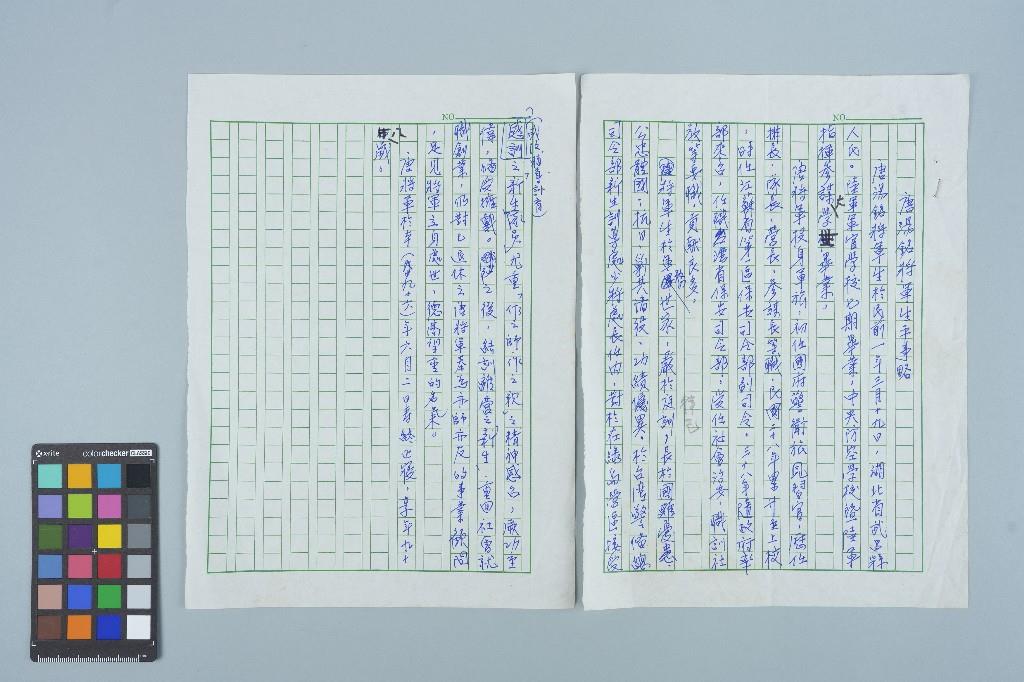 NO.
唐湯銘將軍生平事略
唐湯銘將軍生於民前一年三月十九日,湖北省武昌縣
人氏。陸軍軍官學校七期畢業,中央防空學校暨陸軍
指揮參謀大學畢業。
唐將軍投身軍旅,初任國府警衛旅見習官,歷任
排長、隊長、營長、參謀長等職,民國二十八年累升至上校
,時任江蘇省第 區保安司令部副司令。三十八年隨政府
部來台,任職台灣省保安司令部,受任社會治安、職訓社
放等要職,貢獻良多。
將軍生於 世家,嚴於 訓;長於國難憂患,
待己
公忠體國,抗日、剿共諸役,功績優異。於台灣警備總
司令部新生訓導處少將處長任內,對於在綠島營區接受
NO.
(感化、輔導計育)
感訓之新生 尤重「作之師、作之親」之精神感召,厥功至
偉,備受推戴。 之後,結訓離營之「新生」重回社會就
職創業,仍對已退休之唐將軍奉為亦師亦友的事業顧問
,足見將軍立身處世,德高望重的名氣。
唐將軍於年(九十六)年六月二日壽終正寢,享年九十
八
歲。
xrite
colorchecker